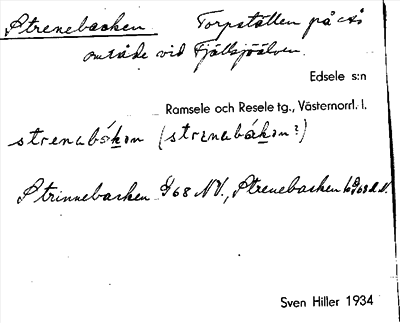 Strenebacken Torpställen på c:a
område vid Fjällsjöälven.
Edsele s:n
Ramsele och Resele tg., Västernorrl. l.
strenabákan (strznabákan?)
Strinnebacken 68 NV., Strenebacken
Sven Hiller 1934